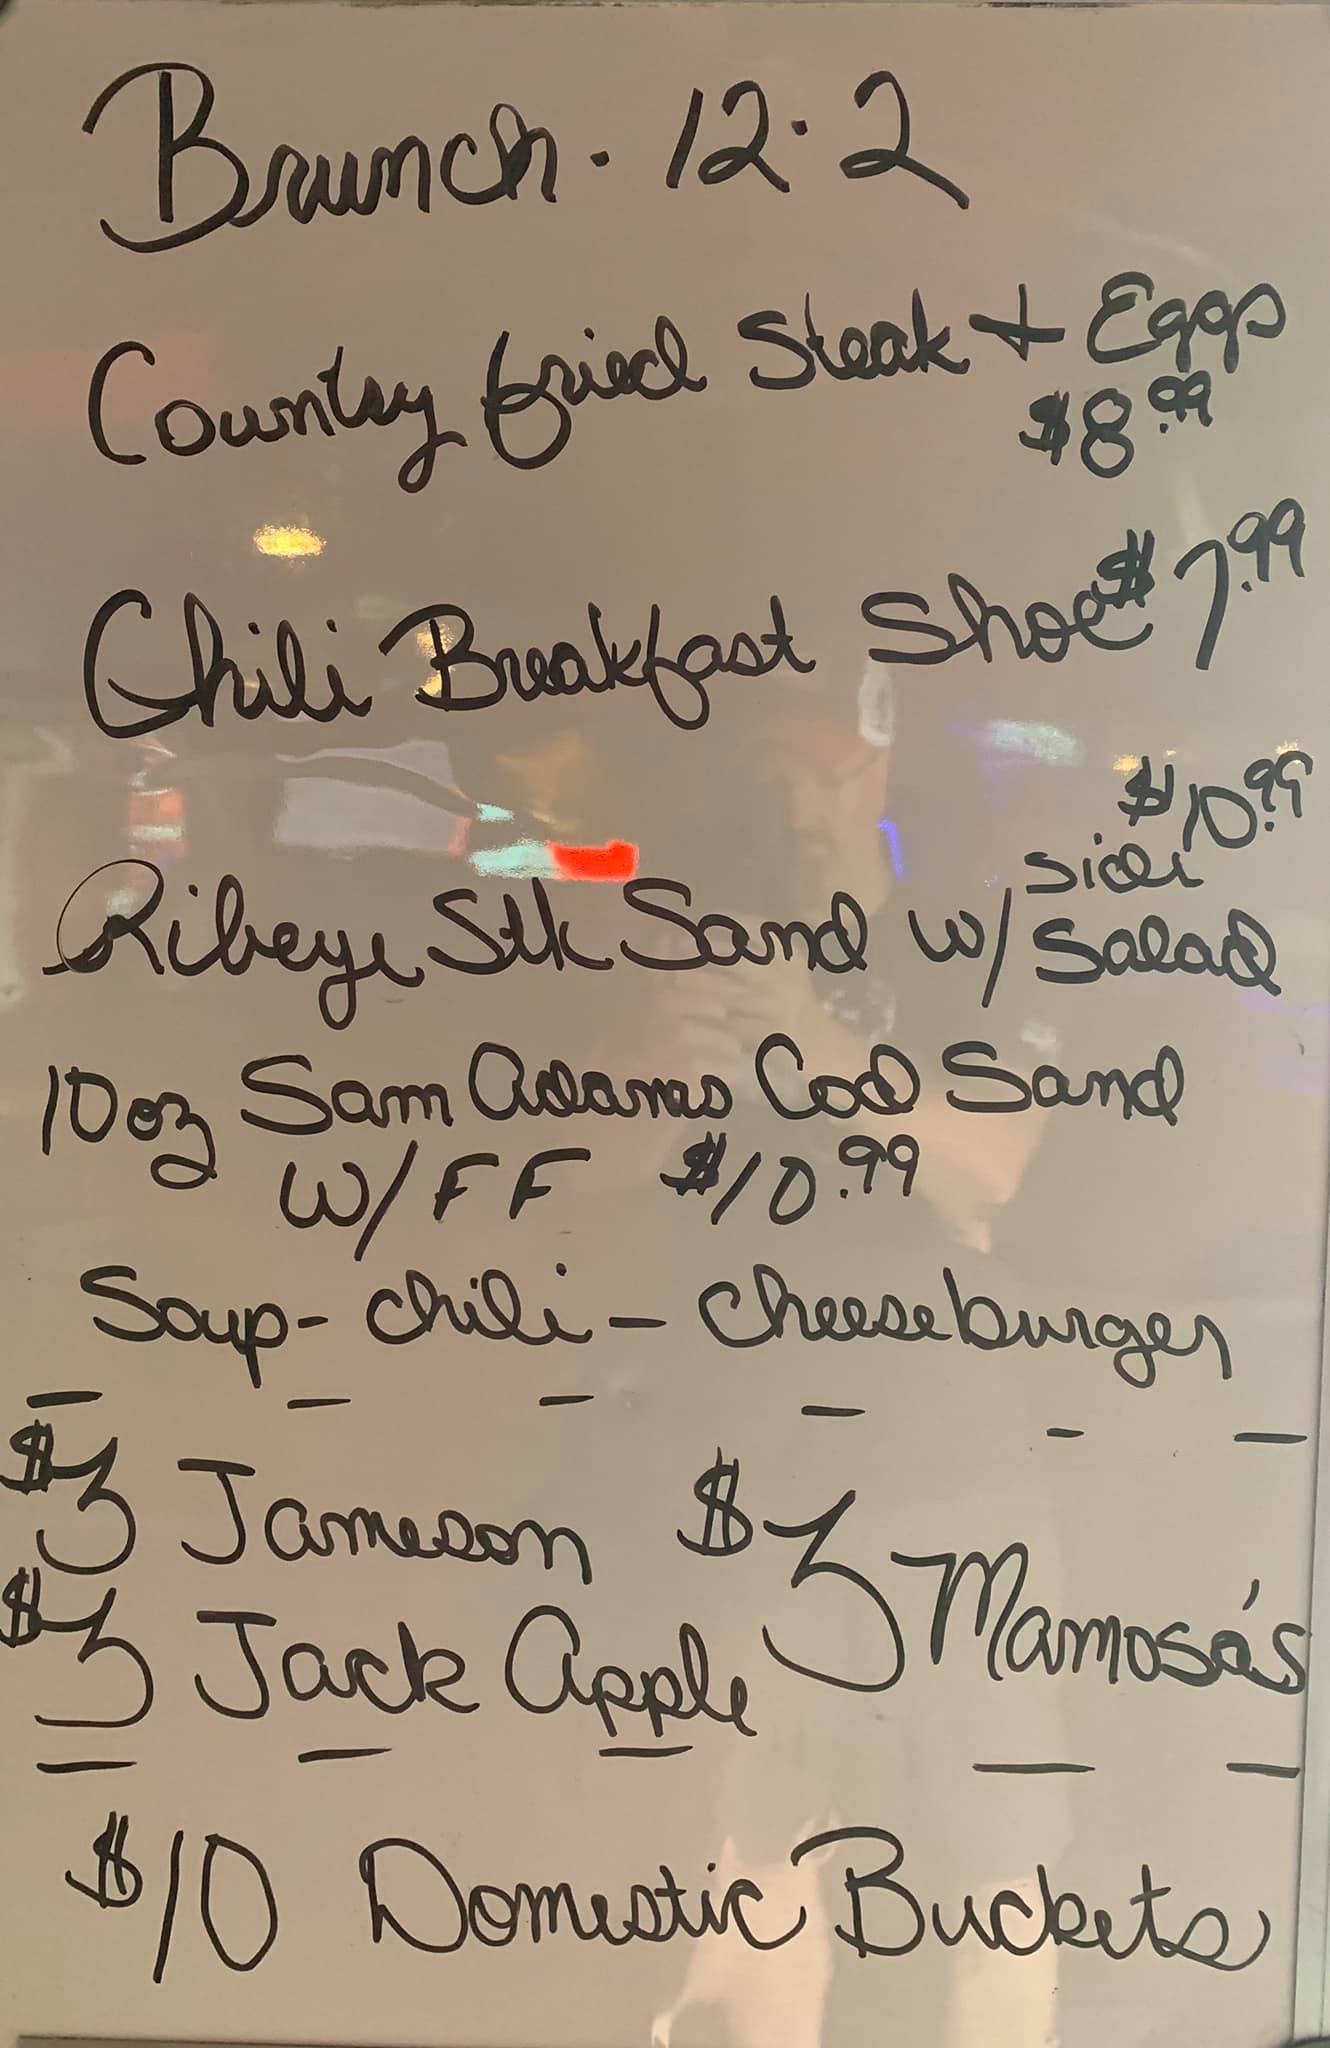 Brunch · 12 · 2
Country fried Steak + Eggs
$8.99
Chili Breakfast Shoe $7.99
$10.99
Ribeye Stk Sand w/ side Salad
10oz Sam Adams Cod Sand
W/FF $10.99
Soup - chili - cheeseburger
$3 Jameson $3 Mamosa's
$3 Jack Apple
$10 Domestic Buckets